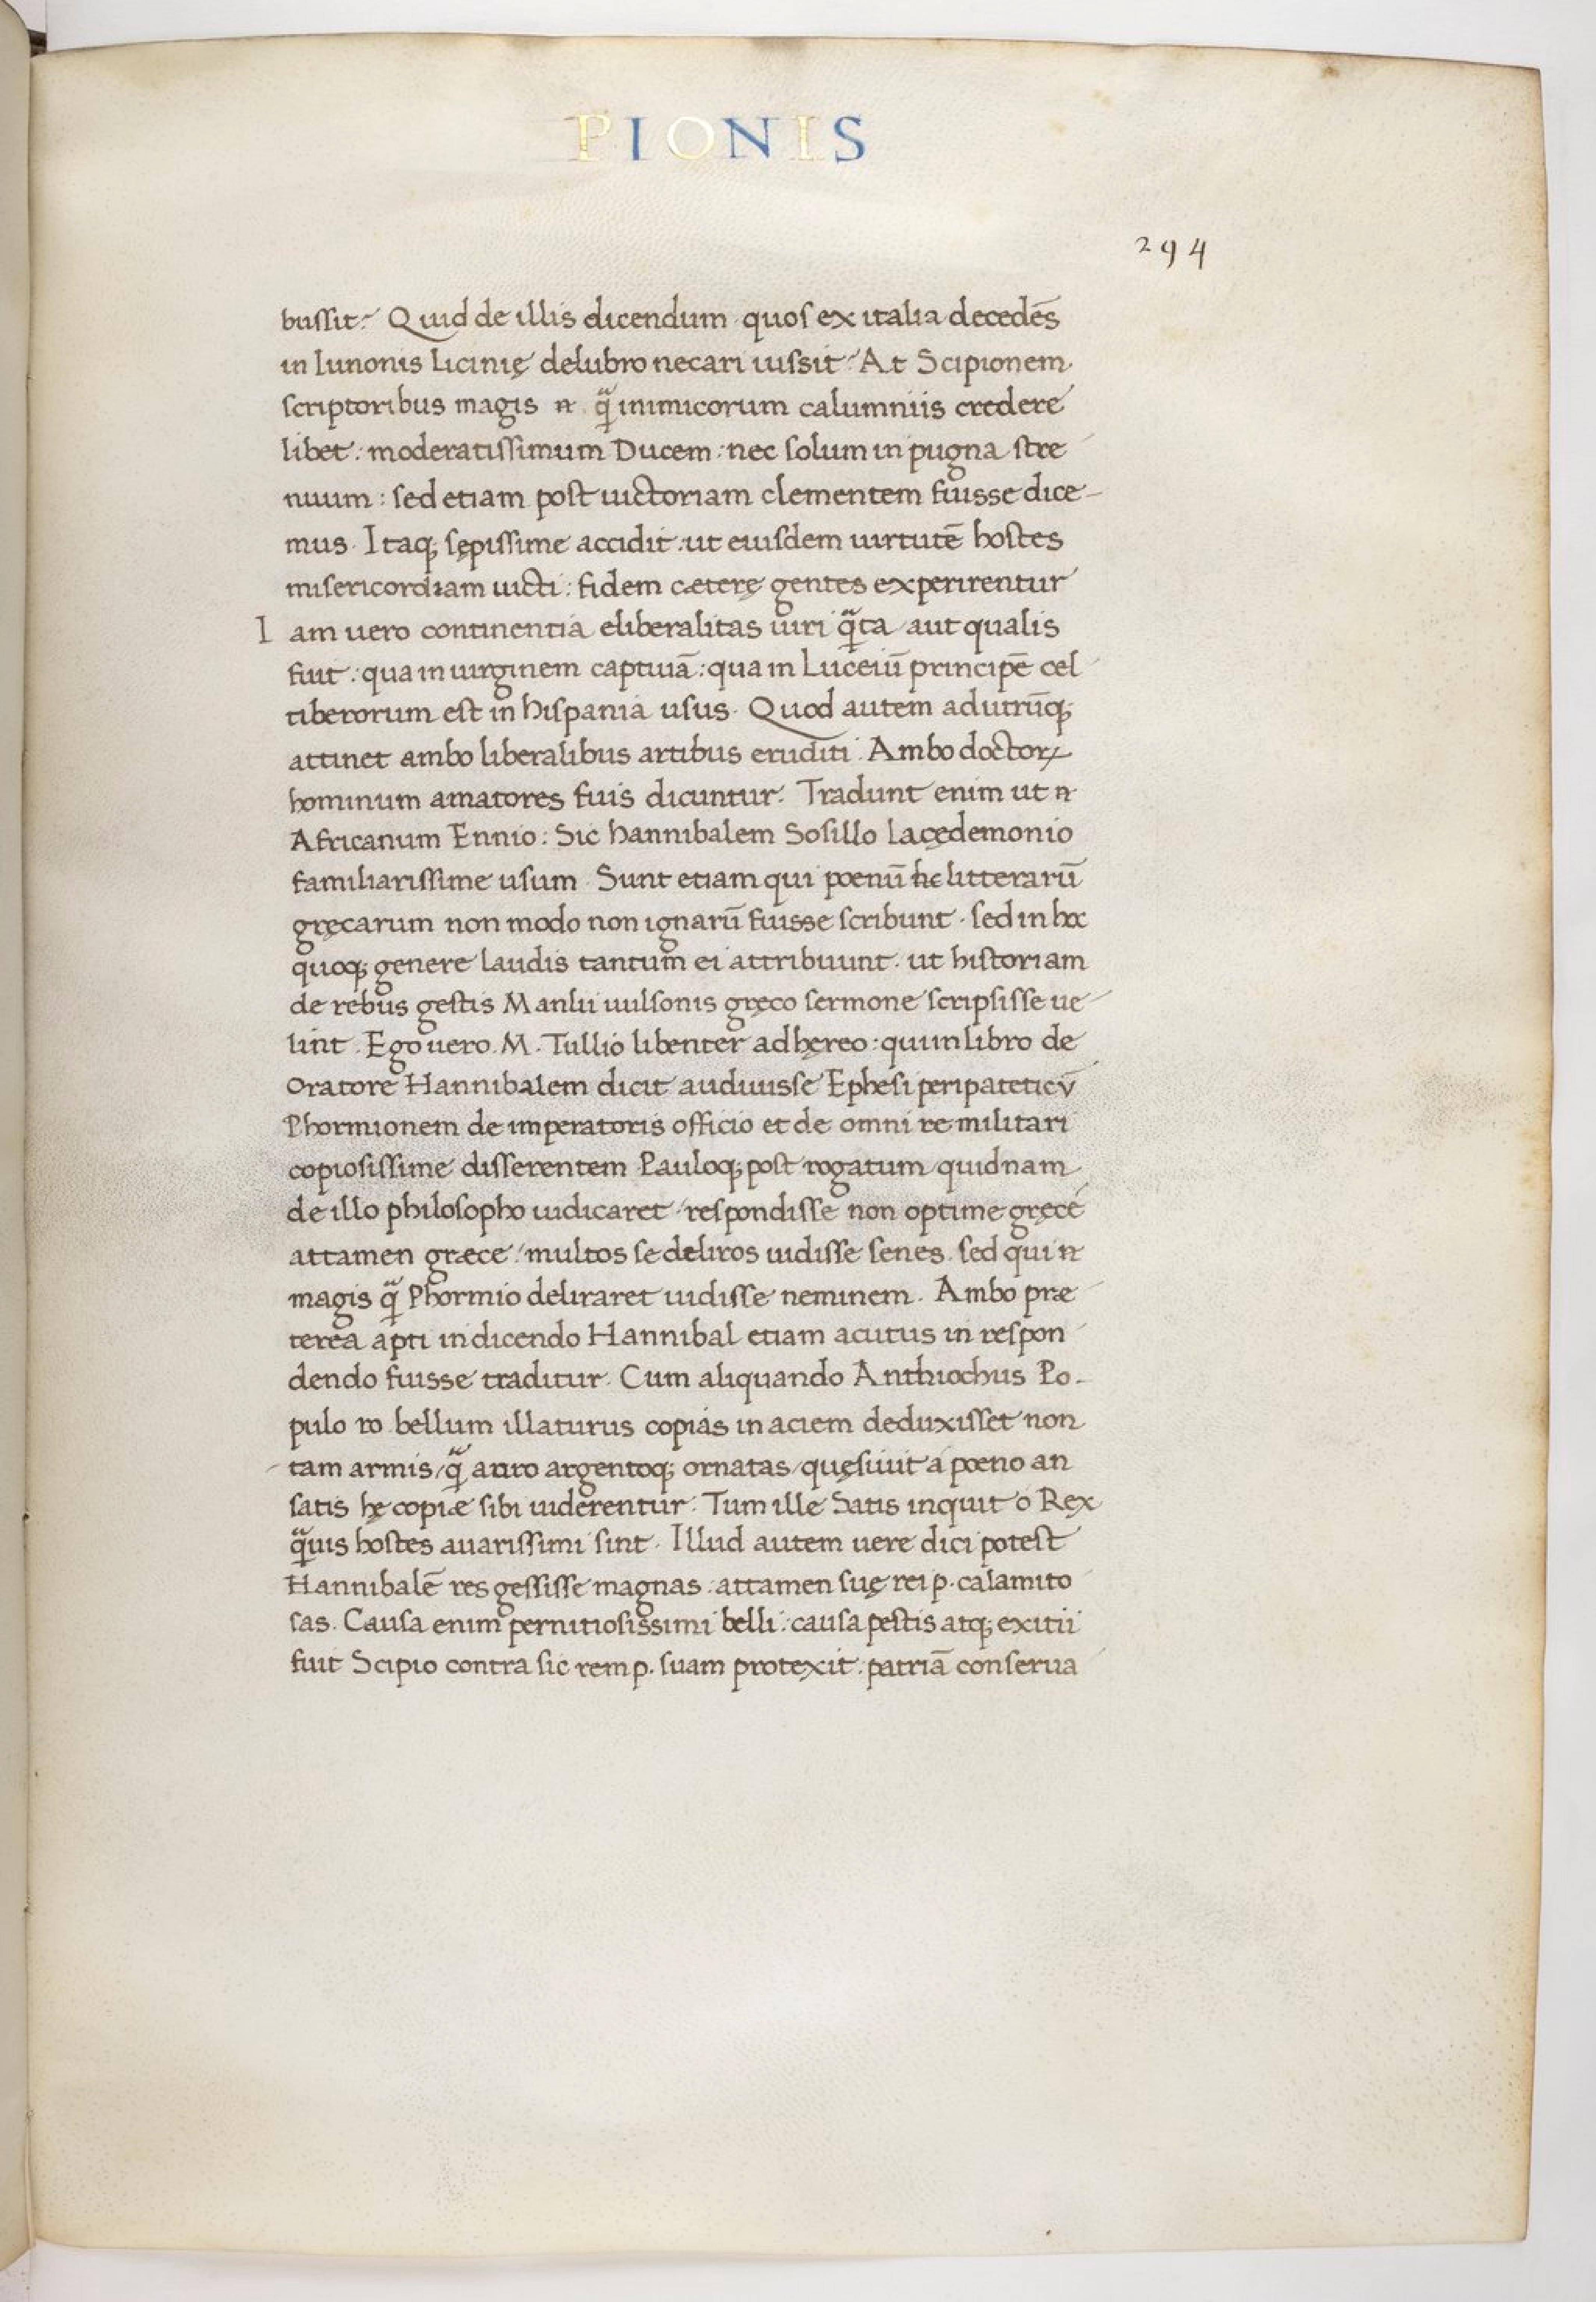 PIONIS
294
bussit? Quid de illis dicendum quos ex italia decedēs
in Iunonis Licinię delubro necari iussit? At Scipionem
scriptoribus magis n̄ q̄ inimicorum calumniis credere
libet: moderatissimum Ducem: nec solum in pugna stre
nuum: sed etiam post uictoriam clementem fuisse dice-
mus. Itaq; sępissime accidit: ut eiusdem uirtutē hostes
misericordiam uicti: fidem cæterę gentes experirentur
Iam uero continentia eliberalitas uiri q̄ta aut qualis
fuit: qua in uirginem captiuā: qua in Luceiū principē cel
tiberorum est in hispania usus. Quod autem ad utrūq;
attinet ambo liberalibus artibus eruditi. Ambo doctoꝝ
hominum amatores fuis dicuntur. Tradunt enim ut n̄
Africanum Ennio: Sic hannibalem Sosillo Lacędemonio
familiarissime usum. Sunt etiam qui poenū hc litterarū
gręcarum non modo non ignarū fuisse scribunt. sed in hoc
quoq; genere laudis tantum ei attribuunt. ut historiam
de rebus gestis Manlii uulsonis gręco sermone scripsisse ue-
lint. Ego uero. M. Tullio libenter adhęreo: qui in libro de
Oratore Hannibalem dicit audiuisse Ephesi peripateticū
Phormionem de imperatoris officio et de omni re militari
copiosissime disserentem Pauloq; post rogatum quidnam
de illo philosopho iudicaret respondisse non optime gręce
attamen græce: multos se deliros uidisse senes. sed qui n̄
magis q̄ Phormio deliraret uidisse neminem. Ambo præ
terea apti in dicendo Hannibal etiam acutus in respon
dendo fuisse traditur. Cum aliquando Anthiochus Po-
pulo ro bellum illaturus copias in aciem deduxisset non
tam armis/q̄ auro argentoq; ornatas/quęsiuit a pœno an
satis hę copiæ sibi uiderentur. Tum ille Satis inquit o Rex
q̄uis hostes auarissimi sint. Illud autem uere dici potest
Hannibalē res gessisse magnas: attamen suę rei p. calamito
sas. Causa enim pernitiosissimi belli: causa pestis atq; exitii
fuit Scipio contra sic rem p. suam protexit: patriā conserua